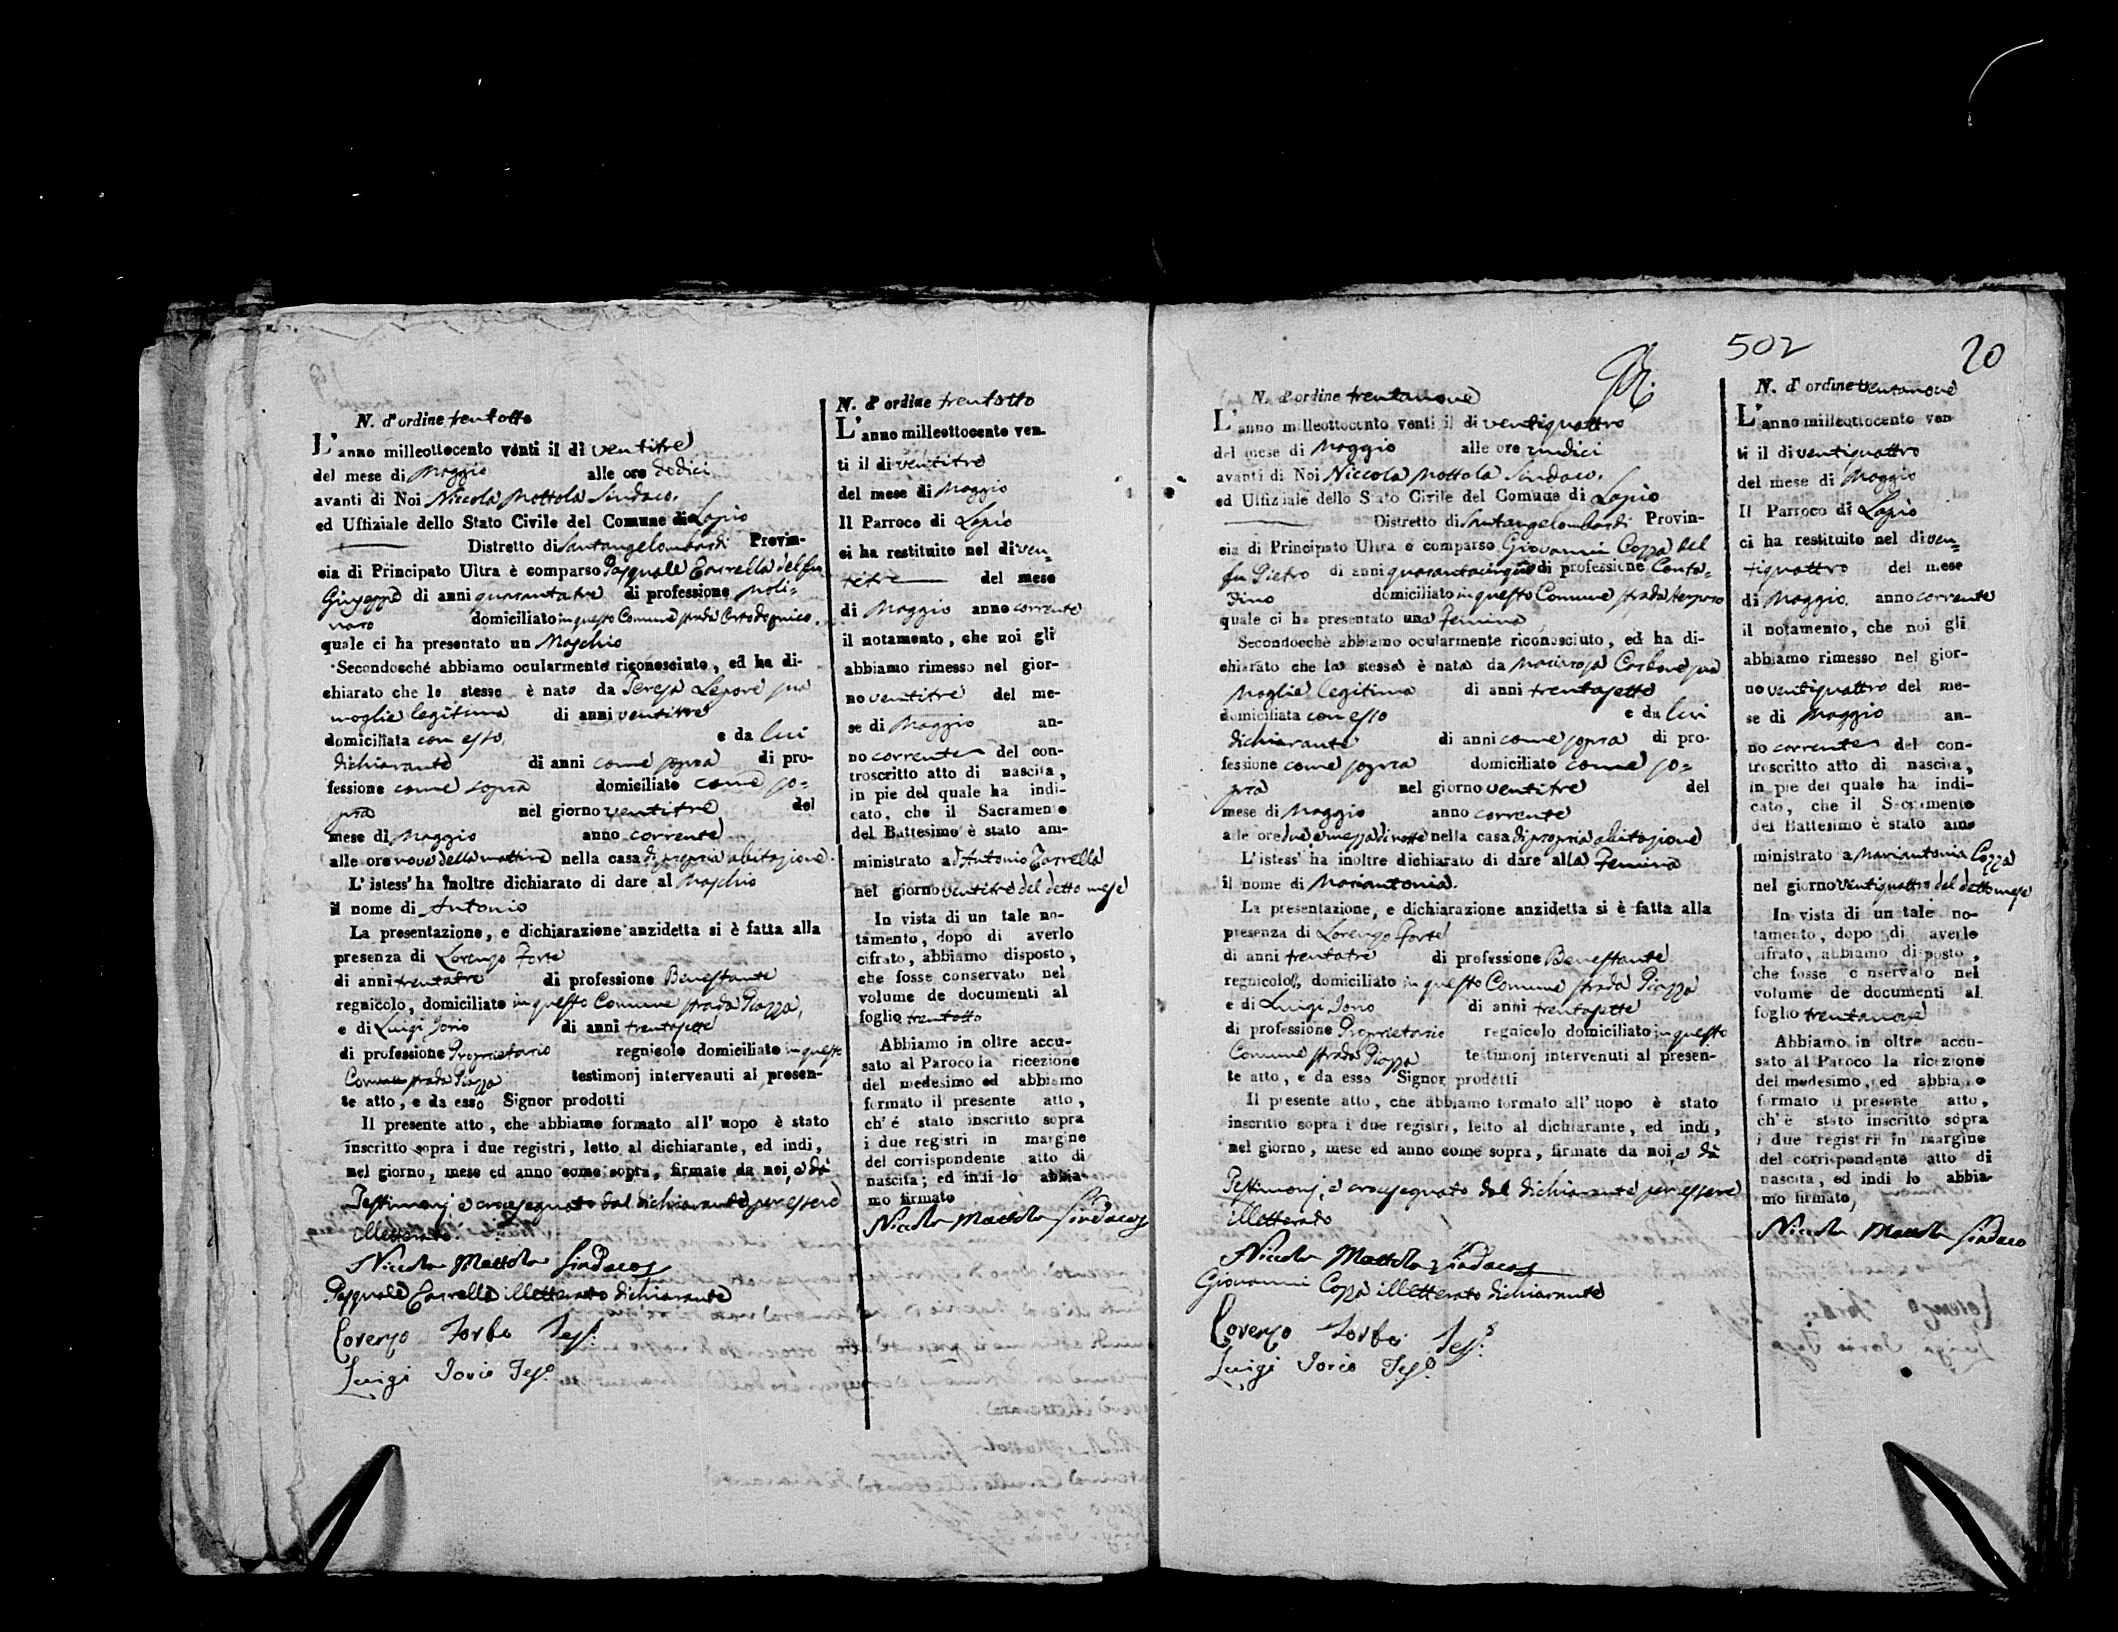 N. d'ordine trentotto
L'anno milleottocento venti il dì ventitre
del mese di Maggio alle ore dodici
avanti di Noi Niccola Mottola Sindaco,
ed Uffiziale dello Stato Civile del Comune di Lapio
Distretto di Santangelombardi Provin-
cia di Principato Ultra è comparso Pasquale del fu
Giuseppe di anni quarantatre di professione Moli-
naro domiciliato in questo Comune strada
quale ci ha presentato un Maschio
Secondocchè abbiamo ocularmente riconosciuto, ed ha di-
chiarato che lo stesso è nato da Teresa Lepore sua
moglie legitima di anni ventitre
domiciliata con esso, e da lui
dichiarante di anni come sopra di pro-
fessione come sopra domiciliato come so-
pra nel giorno ventitre del
mese di Maggio anno corrente
alle ore nove della mattina nella casa di propria abitazione.
L'istess' ha inoltre dichiarato di dare al Maschio
il nome di Antonio
La presentazione, e dichiarazione anzidetta si è fatta alla
presenza di Lorenzo Forte
di anni trentatre di professione Benestante
regnicolo, domiciliato in questo Comune strada Piazza,
e di Luigi Iorio di anni trentasette
di professione Proprietario regnicolo domiciliato in questo
Comune strada Piazza testimonj intervenuti al presen-
te atto, e da esso Signor prodotti
Il presente atto, che abbiamo formato all' uopo è stato
inscritto sopra i due registri, letto al dichiarante, ed indi,
nel giorno, mese ed anno come sopra, firmato da noi, e dà
Testimonj, e crocesegnato dal dichiarante per essere
illetterato.
Niccola Mottola Sindaco
Pasquale illetterato dichiarante
Lorenzo Forte Tes.
Luigi Iorio Tes.o
N. d'ordine trentotto
L'anno milleottocento ven-
ti il dì ventitre
del mese di Maggio
Il Parroco di Lapio
ci ha restituito nel dì ven=
titre del mese
di Maggio anno corrente
il notamento, che noi gli
abbiamo rimesso nel gior-
no ventitre del me-
se di Maggio an-
no corrente del con-
troscritto atto di nascita,
in piè del quale ha indi-
cato, che il Sacramento
del Battesimo è stato am-
ministrato a Antonio
nel giorno ventitre del detto mese
In vista di un tale no-
tamento, dopo di averlo
cifrato, abbiamo disposto,
che fosse conservato nel
volume de documenti al
foglio trentotto
Abbiamo in oltre accu-
sato al Paroco la ricezione
del medesimo ed abbiamo
formato il presente atto,
ch'é stato inscritto sopra
i due registri in margine
del corrispondente atto di
nascita; ed indi lo abbia-
mo firmato
Niccola Mottola Sindaco
502
20
N. d'ordine trentanove
L'anno milleottocento venti il di ventiquattro
del mese di Maggio alle ore undici
avanti di Noi Niccola Mottola Sindaco,
ed Uffiziale dello Stato Civile del Comune di Lapio
Distretto di Santangelombardi Provin-
cia di Principato Ultra è comparso Giovanni Cozza del
fu Pietro di anni quarantacinque di professione Conta=
dino domiciliato in questo Comune strada
quale ci ha presentato una Femina
Secondocchè abbiamo ocularmente riconosciuto, ed ha di-
chiarato che la stessa è nata da Mariarosa Carbone sua
Moglie legitima di anni trentasette
domiciliata con esso e da lui
dichiarante di anni come sopra di pro-
fessione come sopra domiciliato come so=
pra nel giorno ventitre del
mese di Maggio anno corrente
alle ore due e mezza di notte nella casa di propria abitazione
L'istess' ha inoltre dichiarato di dare alla Femina
il nome di Mariantonia.
La presentazione, e dichiarazione anzidetta si è fatta alla
presenza di Lorenzo Forte
di anni trentatre di professione Benestante
regnicolo, domiciliato in questo Comune strada Piazza
e di Luigi Iorio di anni trentasette
di professione Proprietario regnicolo domiciliato in questo
Comune strada Piazza testimonj intervenuti al presen-
te atto, e da esso Signor prodotti
Il presente atto, che abbiamo formato all' uopo è stato
inscritto sopra i due registri, letto al dichiarante, ed indi,
nel giorno, mese ed anno come sopra, firmato da noi, e dà
Testimonj, e crocesegnato dal dichiarante per essere
illetterato
Niccola Mottola Sindaco
Giovanni Cozza illetterato dichiarante
Lorenzo Forte Tes.
Luigi Iorio Tes.o
N. d'ordine trentanove
L'anno milleottocento ven-
ti il di ventiquattro
del mese di Maggio
Il Parroco di Lapio
ci ha restituito nel dì ven=
tiquattro del mese
di Maggio anno corrente
il notamento, che noi gli
abbiamo rimesso nel gior-
no ventiquattro del me-
se di Maggio an-
no corrente del con-
troscritto atto di nascita,
in piè del quale ha indi-
cato, che il Sacramento
del Battesimo è stato am-
ministrato a Mariantonia Cozza
nel giorno ventiquattro del detto mese
In vista di un tale no-
tamento, dopo di averlo
cifrato, abbiamo disposto,
che fosse conservato nel
volume de documenti al
foglio trentanove
Abbiamo in oltre accu-
sato al Paroco la ricezione
del medesimo, ed abbiamo
formato il presente atto,
ch'è stato inscritto sopra
i due registri in margine
del corrispondente atto di
nascita, ed indi lo abbia-
mo firmato,
Niccola Mottola Sindaco